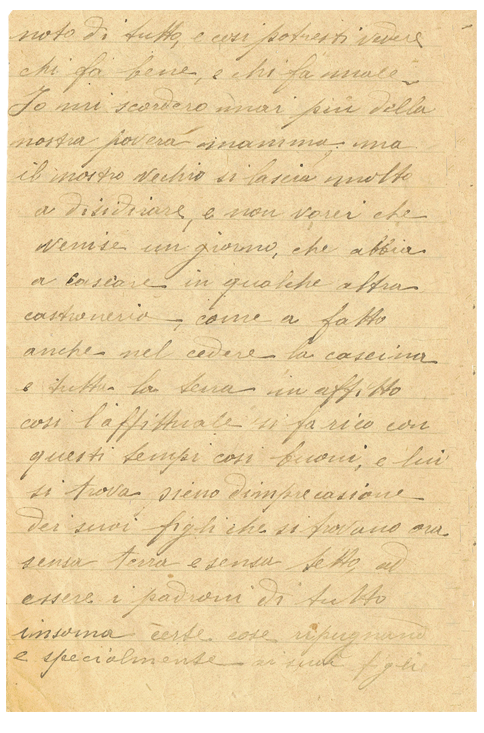 noto di tutto, e così potresti vedere
chi fa bene, e chi fa male.
Io mi scordero mai più della
nostra povera mamma ma
il nostro vechio si lascia molto
a disidirare, e non vorei che
venise un giorno, che abbia
a cascare in qualche altra
castroneria, come a fatto
anche nel cedere la cascina
e tutta la terra in affitto
così l'affittuale si fa rico con
questi tempi così buoni, e lui
si trova pieno dimprecasione
dei suoi figli che si trovano ora
sensa terra e sensa tetto, ad
essere i padroni di tutto
insoma certe cose ripugnano
e specialmente ai suoi figli